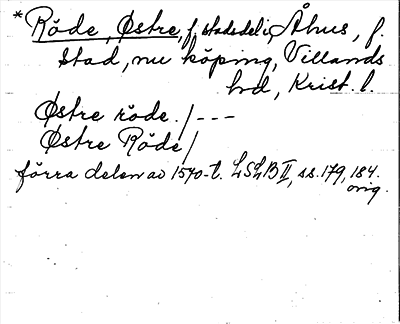 * Röde, Østre, f. stadsdel i Åhus, f.
stad, nu köping, Villands
hd, Krist. l.
Østre röde. / ---
Østre Röde /
förra delen av 1540-t. LSLB II, ss. 179, 184.
orig.